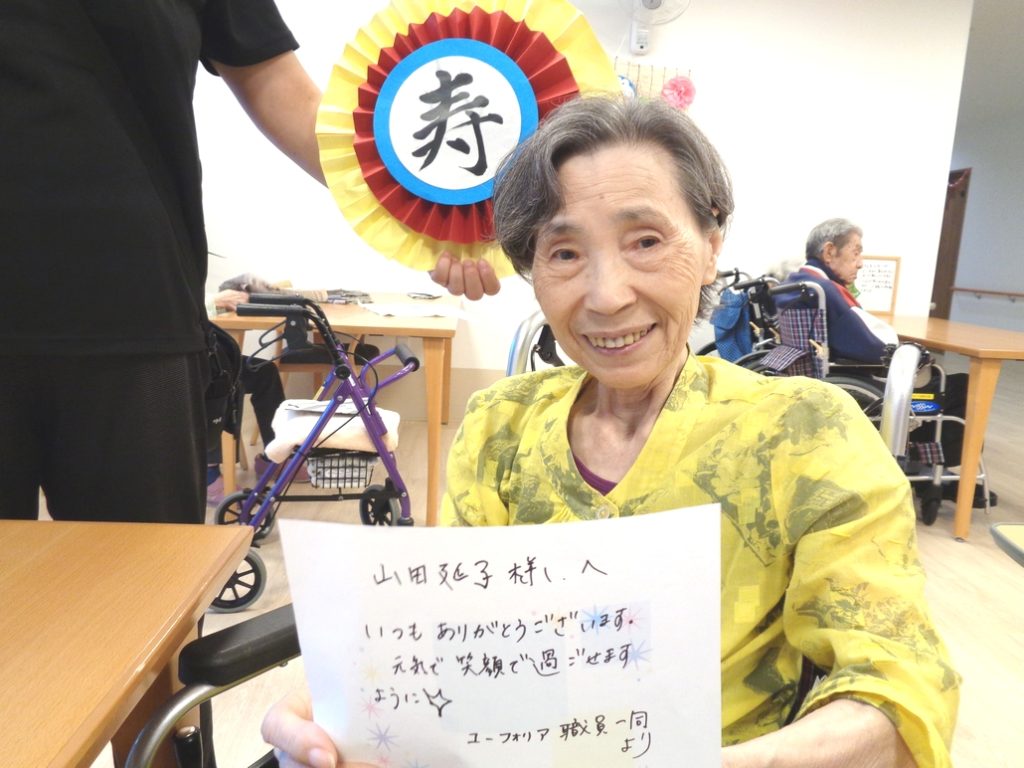 寿
山田延子様へ
いつもありがとうございます。
元気で笑顔で過ごせます
ように
ユーフォリア職員一同
より